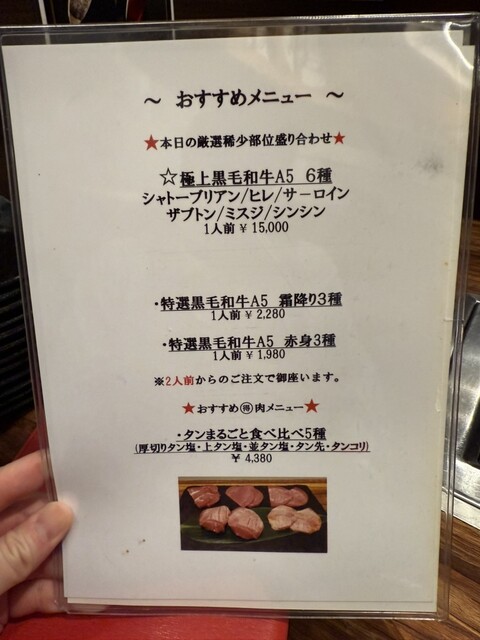 ～ おすすめメニュー ～
★本日の厳選稀少部位盛り合わせ★
☆極上黒毛和牛A5 6種
シャトーブリアン/ヒレ/サーロイン
ザブトン/ミスジ/シンシン
1人前 ¥ 15,000
・特選黒毛和牛A5 霜降り3種
1人前 ¥ 2,280
・特選黒毛和牛A5 赤身3種
1人前 ¥ 1,980
※2人前からのご注文で御座います。
★おすすめ㊝肉メニュー★
・タンまるごと食べ比べ5種
(厚切りタン塩・上タン塩・並タン塩・タン先・タンコリ)
¥ 4,380